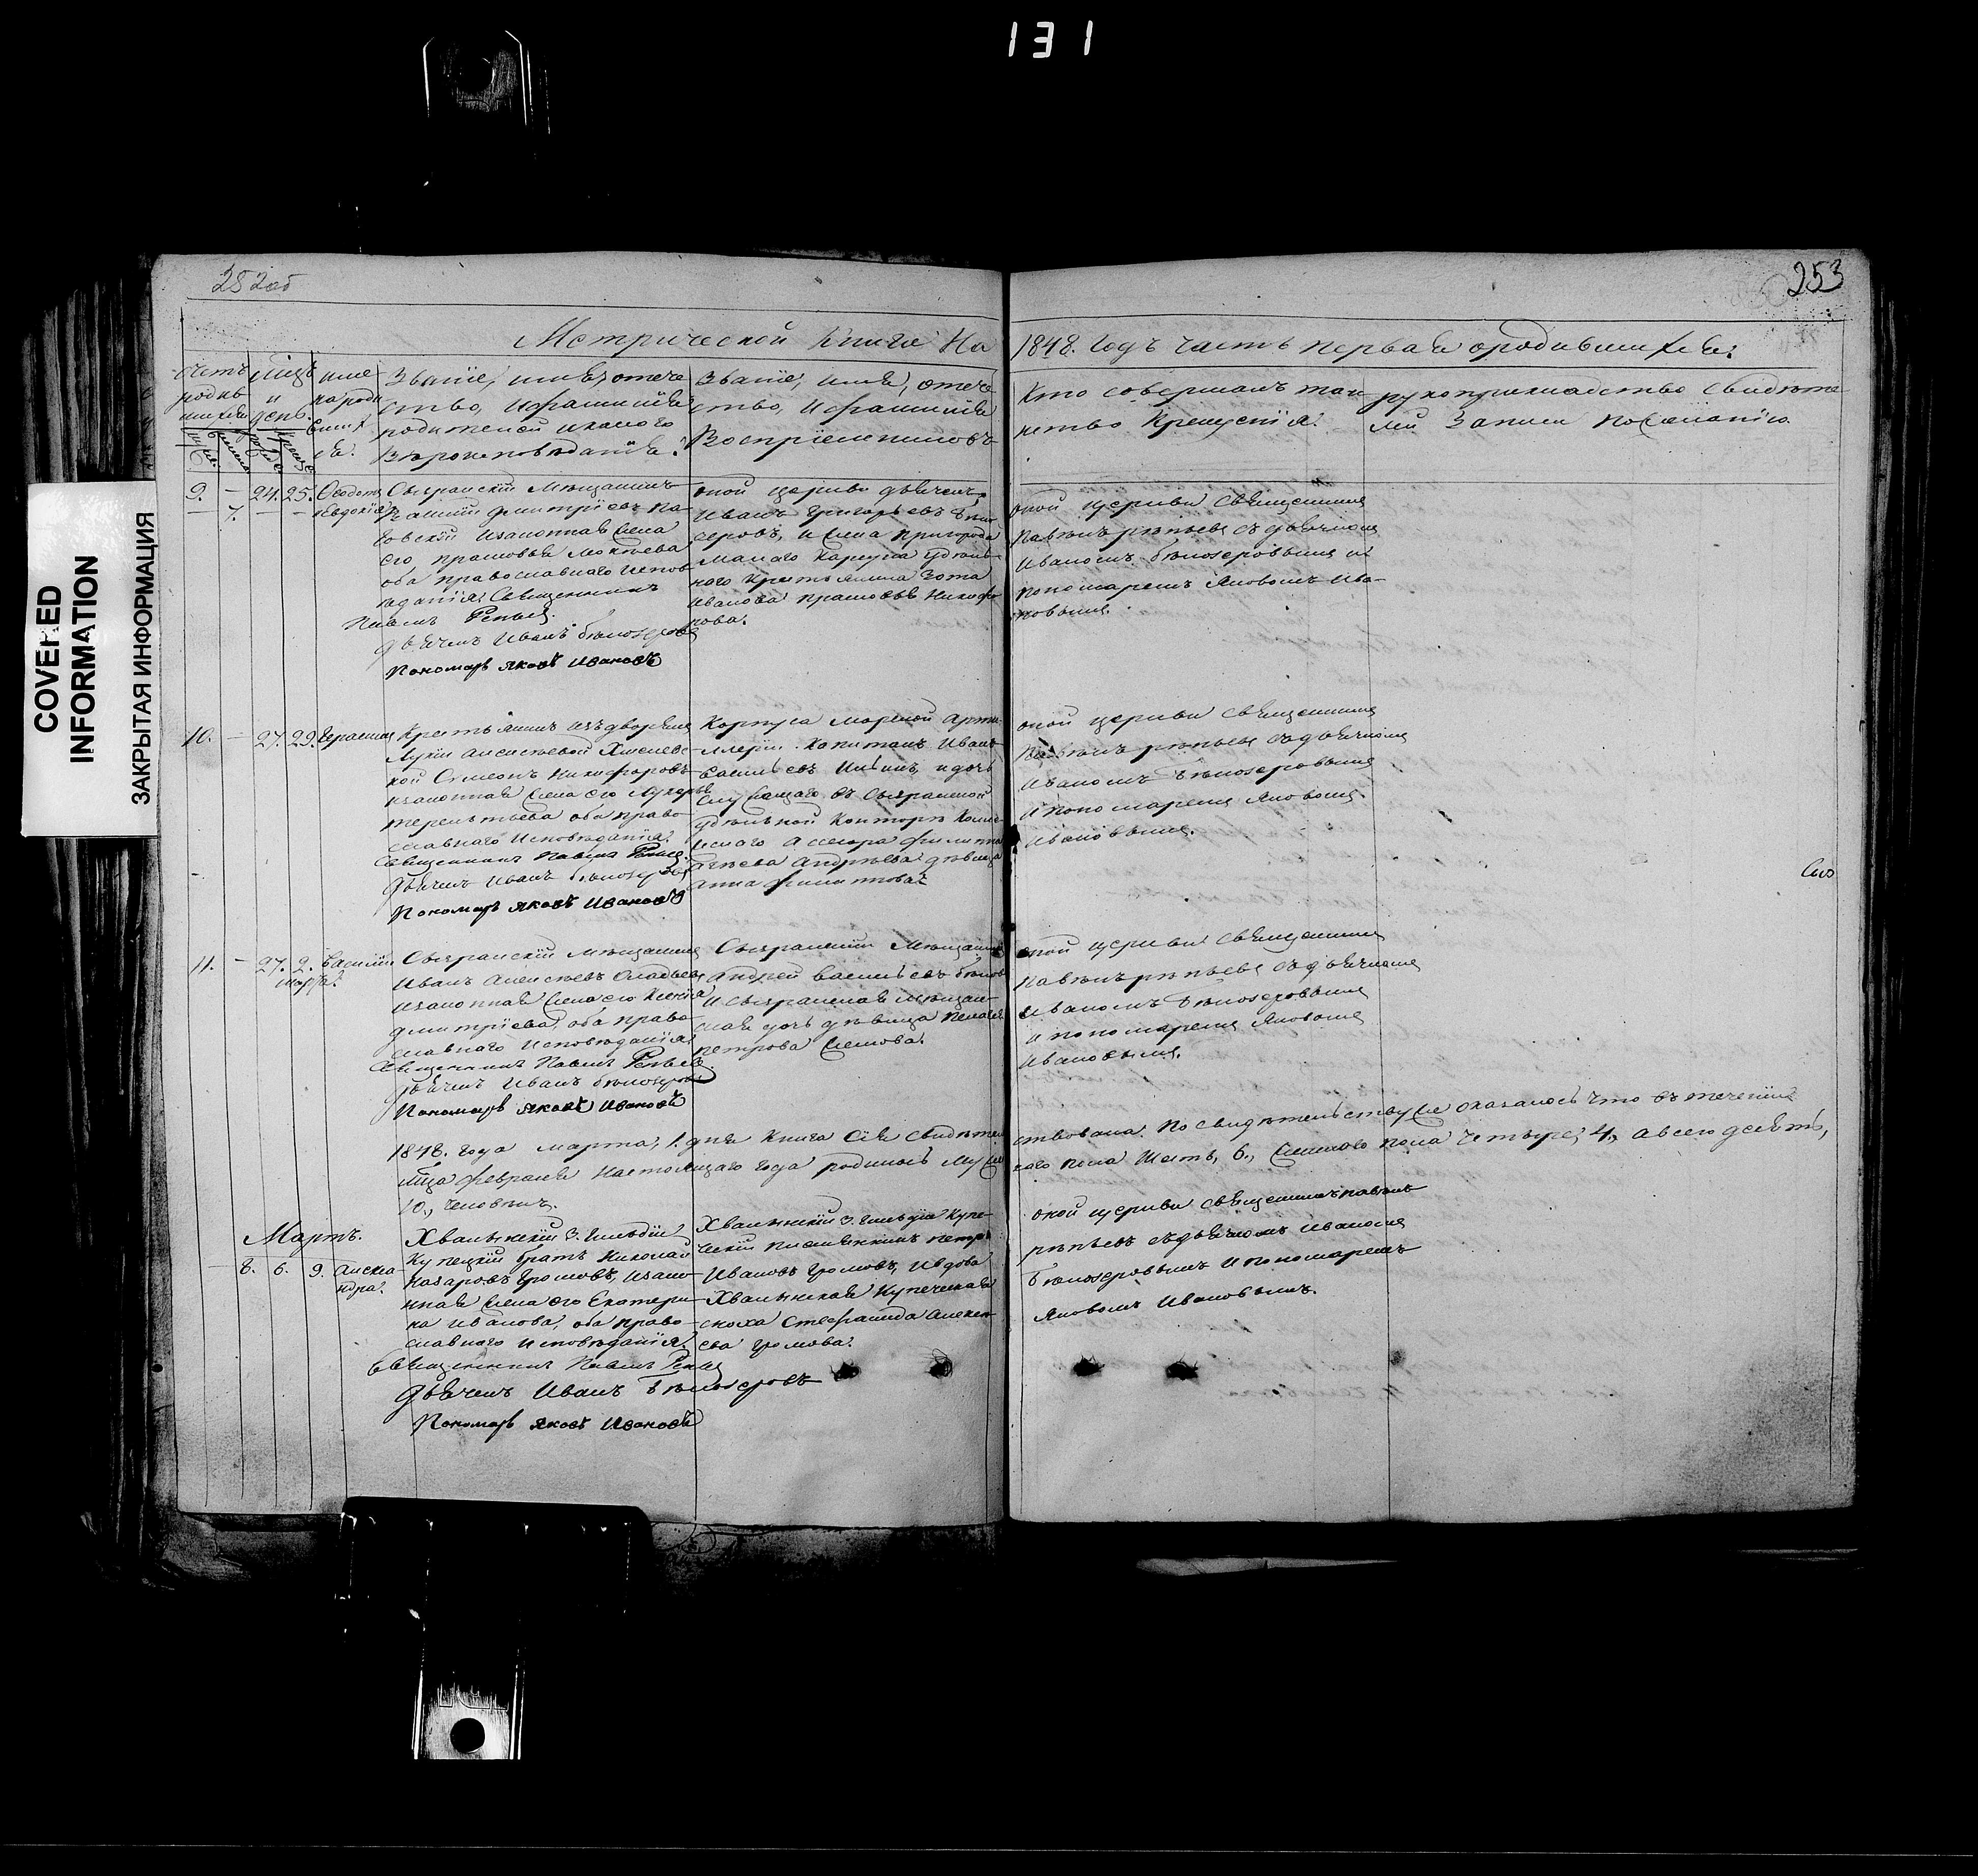 131
COVERED
INFORMATION
ЗАКРЫТАЯ ИНФОРМАЦИЯ
252об
253
Метрической книги На
1848. годъ часть первая о родившихся.
Счетъ
родив
шихся
мцъ
и
день.
име
на роди
вших
ся.
Званіе, имя, отече
ство, и фамилія
родителей и какого
Вѣроисповѣданія.
Званіе, имя, отече
ство, и фамилія
Воспріемниковъ
Кто совершалъ таи
нство крещенія.
рукоприкладство свидѣте
лей записи по желанію.
9. — 24. 25.
— 7. — —
Евдокія
Сызранскій мѣщанинъ
Дмитріевъ
и законная жена
его Прасковья
оба православнаго испов
ѣданія. Священникъ
Павелъ Репьев
дьячекъ Иванъ Бѣлозеровъ
Пономарь Яковъ Ивановъ
оной церкви дьячекъ
Иванъ Григорьевъ Бѣло
зеровъ, и жена пригорода
Малаго Карсуна удѣль
наго крестьянина Зота
Иванова Прасковья Никифо
рова.
оной церкви священник
Павелъ Рѣпьевъ съ дьячком
Иваномъ Бѣлозеровымъ и
пономаремъ Яковомъ Ива
новымъ.
10. — 27. 29. Герасимъ
Крестьянинъ
Симеонъ Никифоровъ
и законная жена его
Терентьева оба право
славнаго исповѣданія.
Священникъ Павелъ Репьев
Дьячекъ Иванъ Бѣлозеровъ
Пономарь Яковъ Ивановъ
Корпуса морской арти
ллеріи Капитанъ Иванъ
Васильевъ Ильинъ, и дочь
служащаго въ Сызранской
удѣльной Конторѣ Колле
жскаго Асессора Филиппа
Андрѣева дѣвица
Анна Филиппова.
оной церкви священник
Павелъ Рѣпьевъ съ дьячкомъ
Иваномъ Бѣлозеровымъ
и пономаремъ Яковомъ
Ивановымъ.
11. — 27. 2. Василій
марта.
Сызранскій мѣщанинъ
Иванъ Алексѣевъ
и законная жена его Ксенія
Дмитріева, оба право
славнаго исповѣданія.
Священникъ Павелъ Репьевъ
Дьячекъ Иванъ Бѣлозеров
Пономарь Яковъ Ивановъ
Сызранскій мѣщанин
Андрей Васильевъ
и сызранская мѣщан
ская дочь дѣвица Пелагея
Петрова
оной церкви священник
Павелъ Рѣпьевъ съ дьячкомъ
Иваномъ Бѣлозеровымъ
и пономаремъ Яковомъ
Ивановымъ.
1848. года марта, 1. дня книга сія свидѣтел
ствована. По свидѣтельству же оказалось что въ теченіи
мца февраля настоящаго года родилось муже
скаго пола шесть, 6., женскаго пола четыре, 4., а всего десять,
10., человѣкъ.
Мартъ.
— 8. 6. 9. Алекса
ндра.
Хвалынскій 3. гильдіи
купецкій братъ Николай
Назаровъ Громовъ, и зако
нная жена его Екатери
на Иванова, оба право
славнаго исповѣданія.
Священникъ Павелъ Репьев
Дьячекъ Иванъ Бѣлозеровъ
Пономарь Яковъ Ивановъ
Хвалынскій 3. гильдіи купе
ческій племянникъ Петръ
Ивановъ Громовъ, и вдова
Хвалынская купеческая
сноха Стефанида Алексе
ева Громова.
оной церкви священникъ Павелъ
Рѣпьевъ съ дьячкомъ Иваномъ
Бѣлозеровымъ и пономаремъ
Яковомъ Ивановымъ.